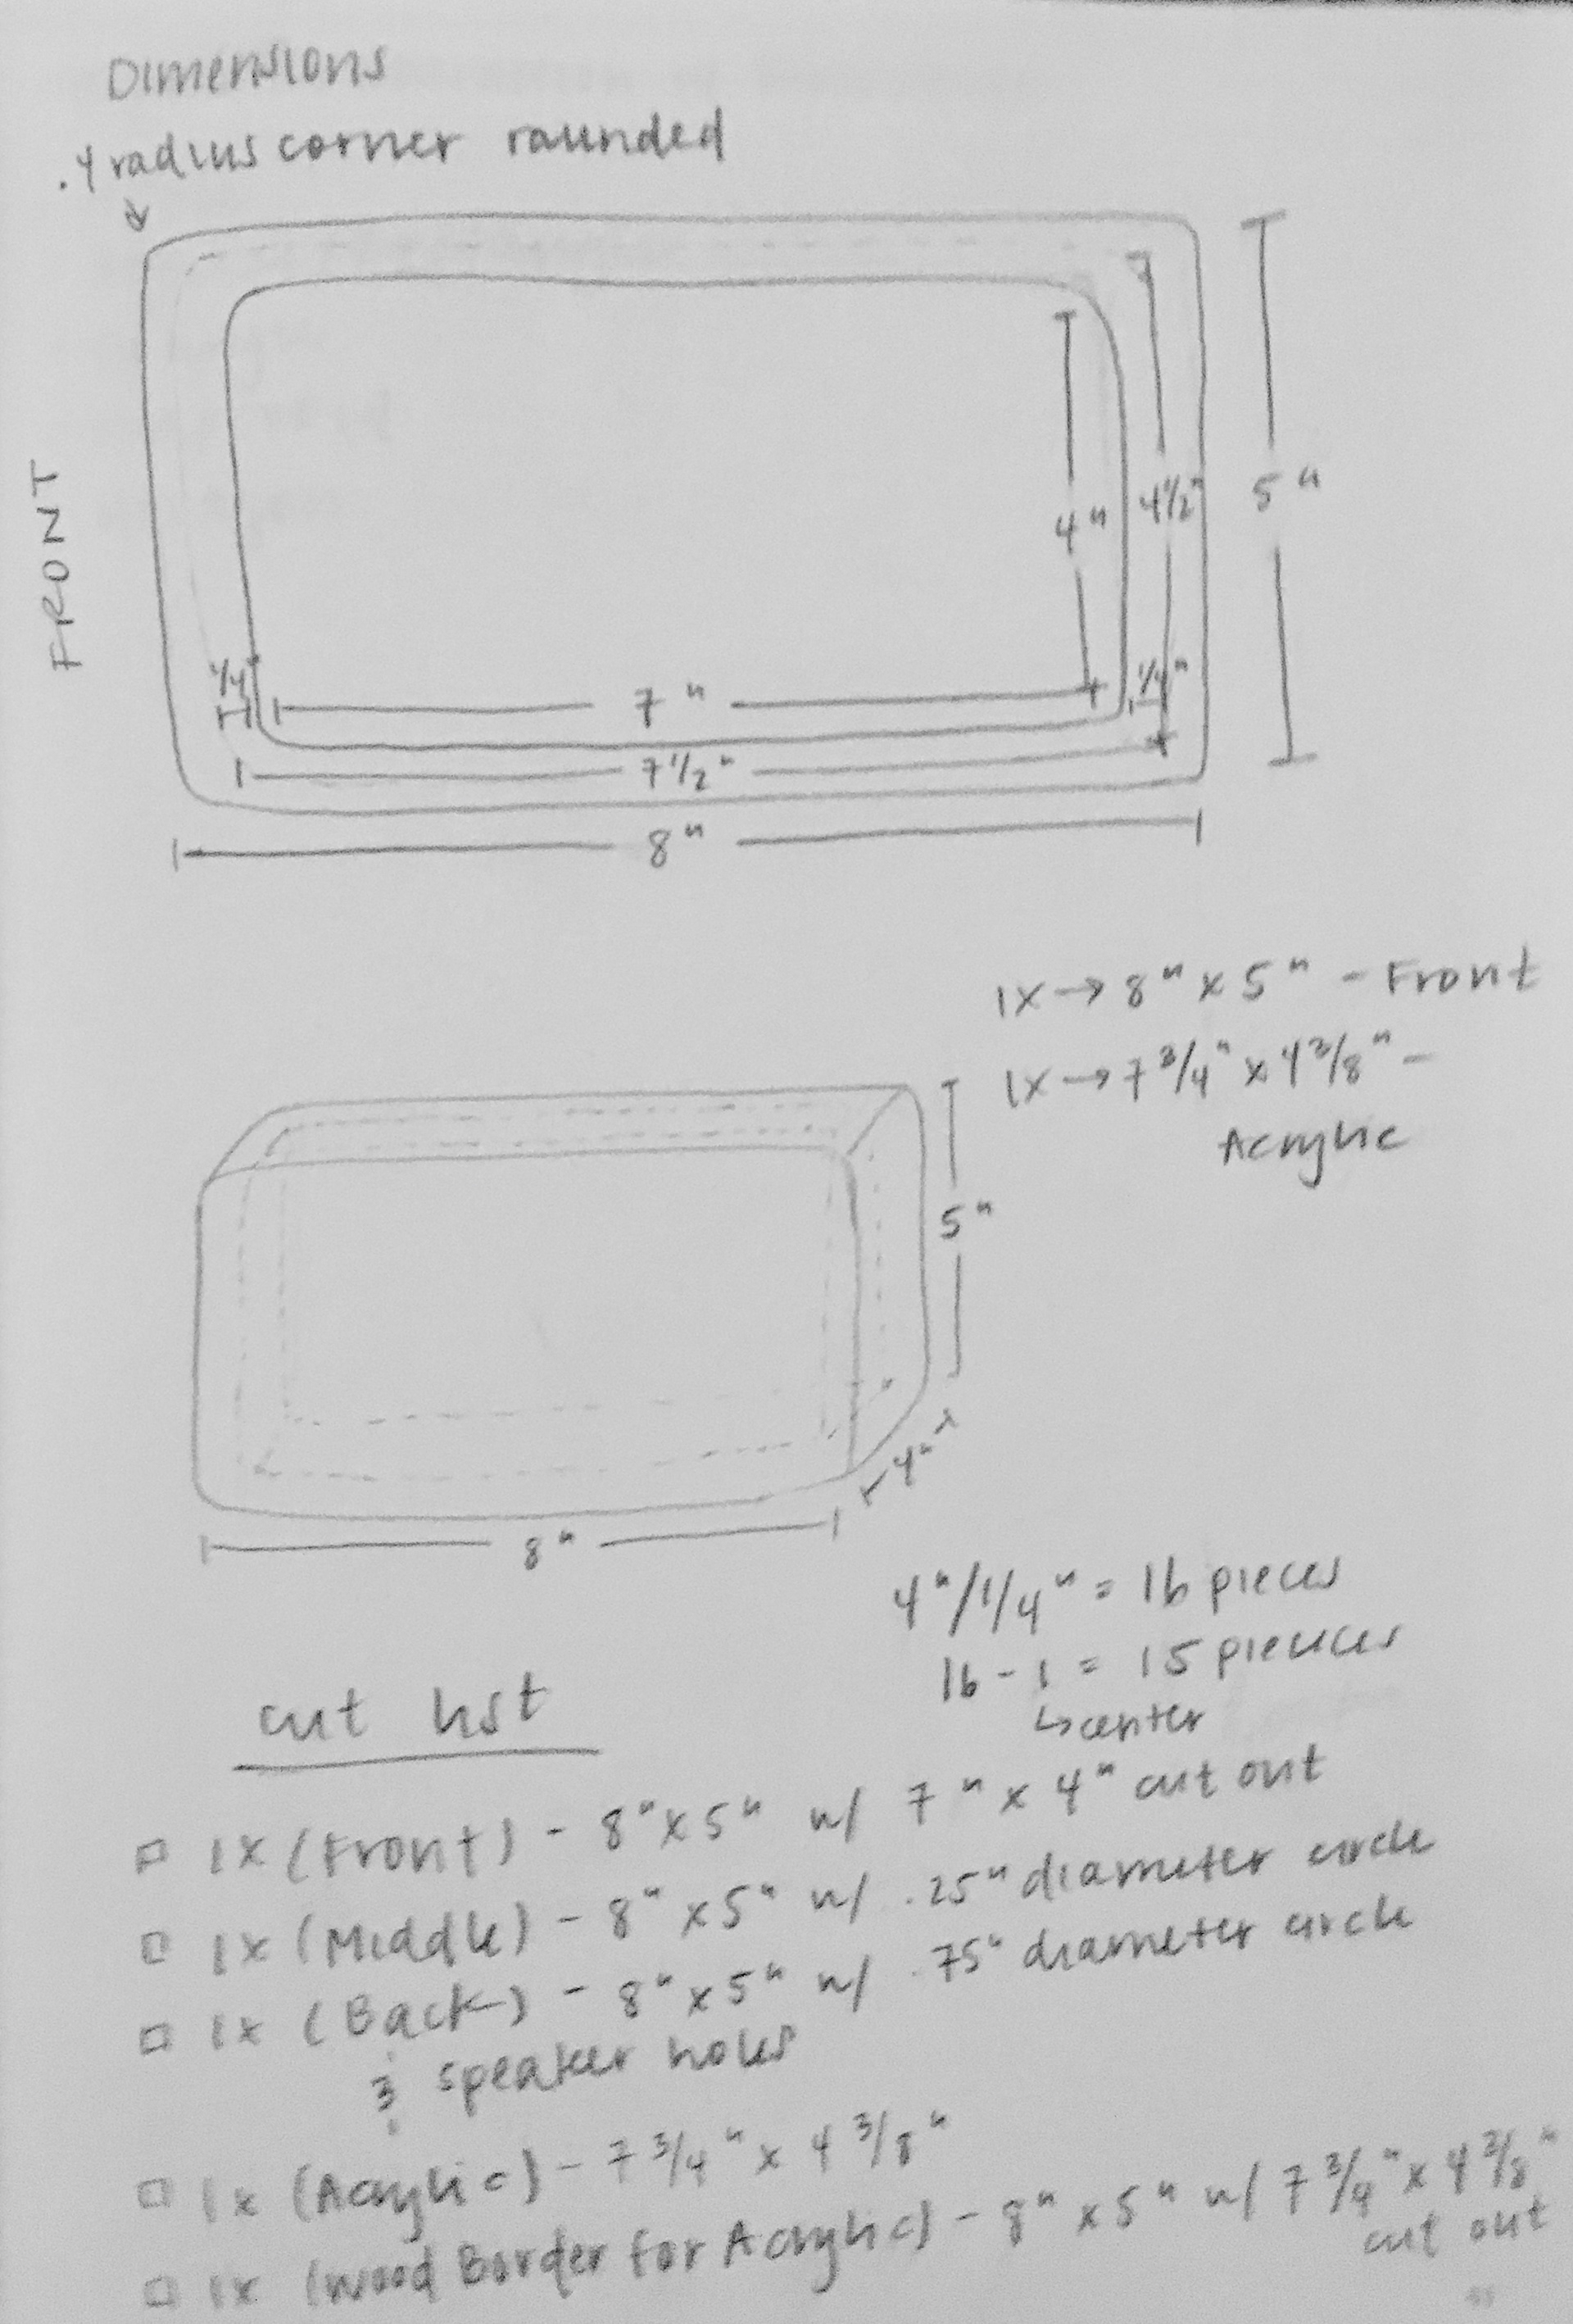 Dimensions
.4 radius corner rounded
FRONT
4"
4 1/2"
5"
1/4"
7"
1/4"
7 1/2"
8"
1x → 8" x 5" - Front
1x → 7 3/4" x 4 3/8" -
Acrylic
5"
4"
8"
4"/1/4" = 16 pieces
16 - 1 = 15 pieuces
↳ center
cut list
□ 1x (Front) - 8" x 5" w/ 7" x 4" cut out
□ 1x (Middle) - 8" x 5" w/ .25" diameter circle
□ 1x (Back) - 8" x 5" w/ .75" diameter circle
& speaker holes
□ 1x (Acrylic) - 7 3/4" x 4 3/8"
□ 1x (Wood Border for Acrylic) - 8" x 5" w/ 7 3/4" x 4 3/8"
cut out